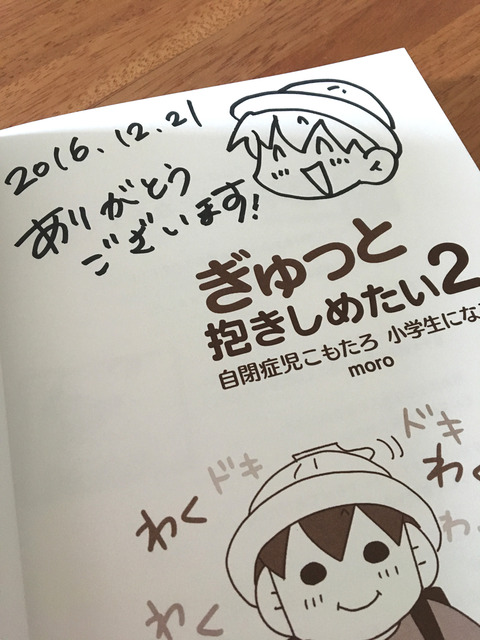 2016.12.21
ありがとう
ございます!
ぎゅっと
抱きしめたい2
自閉症児こもたろ 小学生にな
moro
ドキ
ドキ
わく
わく
わく
わ